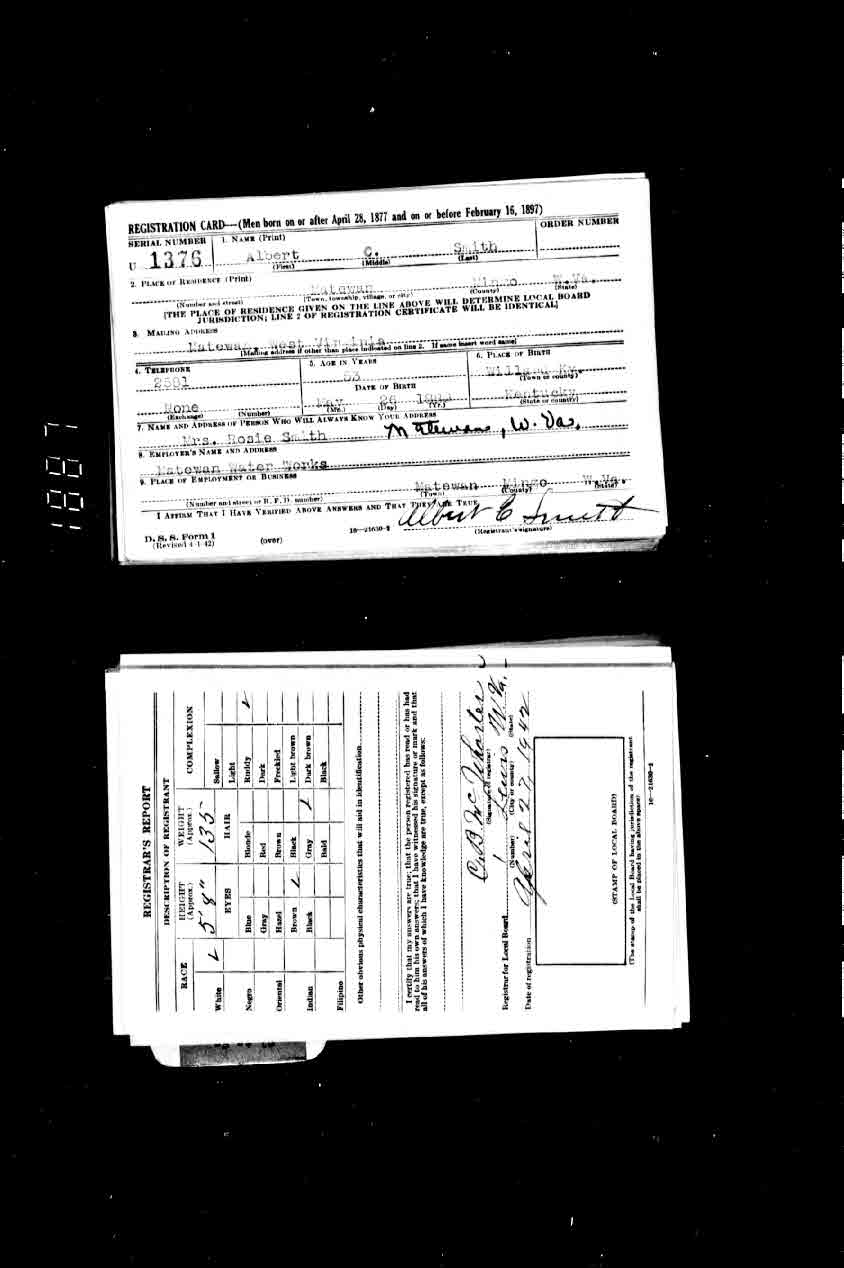 REGISTRATION CARD—(Men born on or after April 28, 1877 and on or before February 16, 1897)
SERIAL NUMBER 1. NAME (Print) ORDER NUMBER
U 1376 Albert C. Smith
(First) (Middle) (Last)
2. PLACE OF RESIDENCE (Print)
Matewan Mingo W.Va.
(Number and street) (Town, township, village, or city) (County) (State)
[THE PLACE OF RESIDENCE GIVEN ON THE LINE ABOVE WILL DETERMINE LOCAL BOARD
JURISDICTION; LINE 2 OF REGISTRATION CERTIFICATE WILL BE IDENTICAL]
3. MAILING ADDRESS
Matewan, West Virginia
[Mailing address if other than place indicated on line 2. If same insert word same]
4. TELEPHONE 5. AGE IN YEARS 6. PLACE OF BIRTH
2591 53
DATE OF BIRTH (Town or county)
None May 26 Kentucky
(Exchange) (Number) (Mo.) (Day) (Yr.) (State or country)
7. NAME AND ADDRESS OF PERSON WHO WILL ALWAYS KNOW YOUR ADDRESS
Mrs. Rosie Smith Matewan, W. Va.
8. EMPLOYER'S NAME AND ADDRESS
Matewan Water Works
9. PLACE OF EMPLOYMENT OR BUSINESS
Matewan Mingo W.Va.
(Number and street or R. F. D. number) (Town) (County) (State)
I AFFIRM THAT I HAVE VERIFIED ABOVE ANSWERS AND THAT THEY ARE TRUE.
Albert C Smith
D. S. S. Form 1 16—21630-2 (Registrant's signature)
(Revised 4-1-42) (over)
1887
REGISTRAR'S REPORT
DESCRIPTION OF REGISTRANT
RACE HEIGHT (Approx.) WEIGHT (Approx.) COMPLEXION
5' 8" 135
White EYES HAIR Sallow
Light
Negro Blue Blonde Ruddy
Gray Red Dark
Oriental Hazel Brown Freckled
Brown Black Light brown
Indian Black Gray Dark brown
Bald Black
Filipino
Other obvious physical characteristics that will aid in identification
I certify that my answers are true; that the person registered has read or has had
read to him his own answers; that I have witnessed his signature or mark and that
all of his answers of which I have knowledge are true, except as follows:
(Signature of registrar)
Registrar for Local Board 1 W.Va.
(Number) (City or county) (State)
Date of registration April 27, 1942
(STAMP OF LOCAL BOARD)
(The stamp of the Local Board having jurisdiction of the registrant
shall be placed in the above space)
16—21630-1